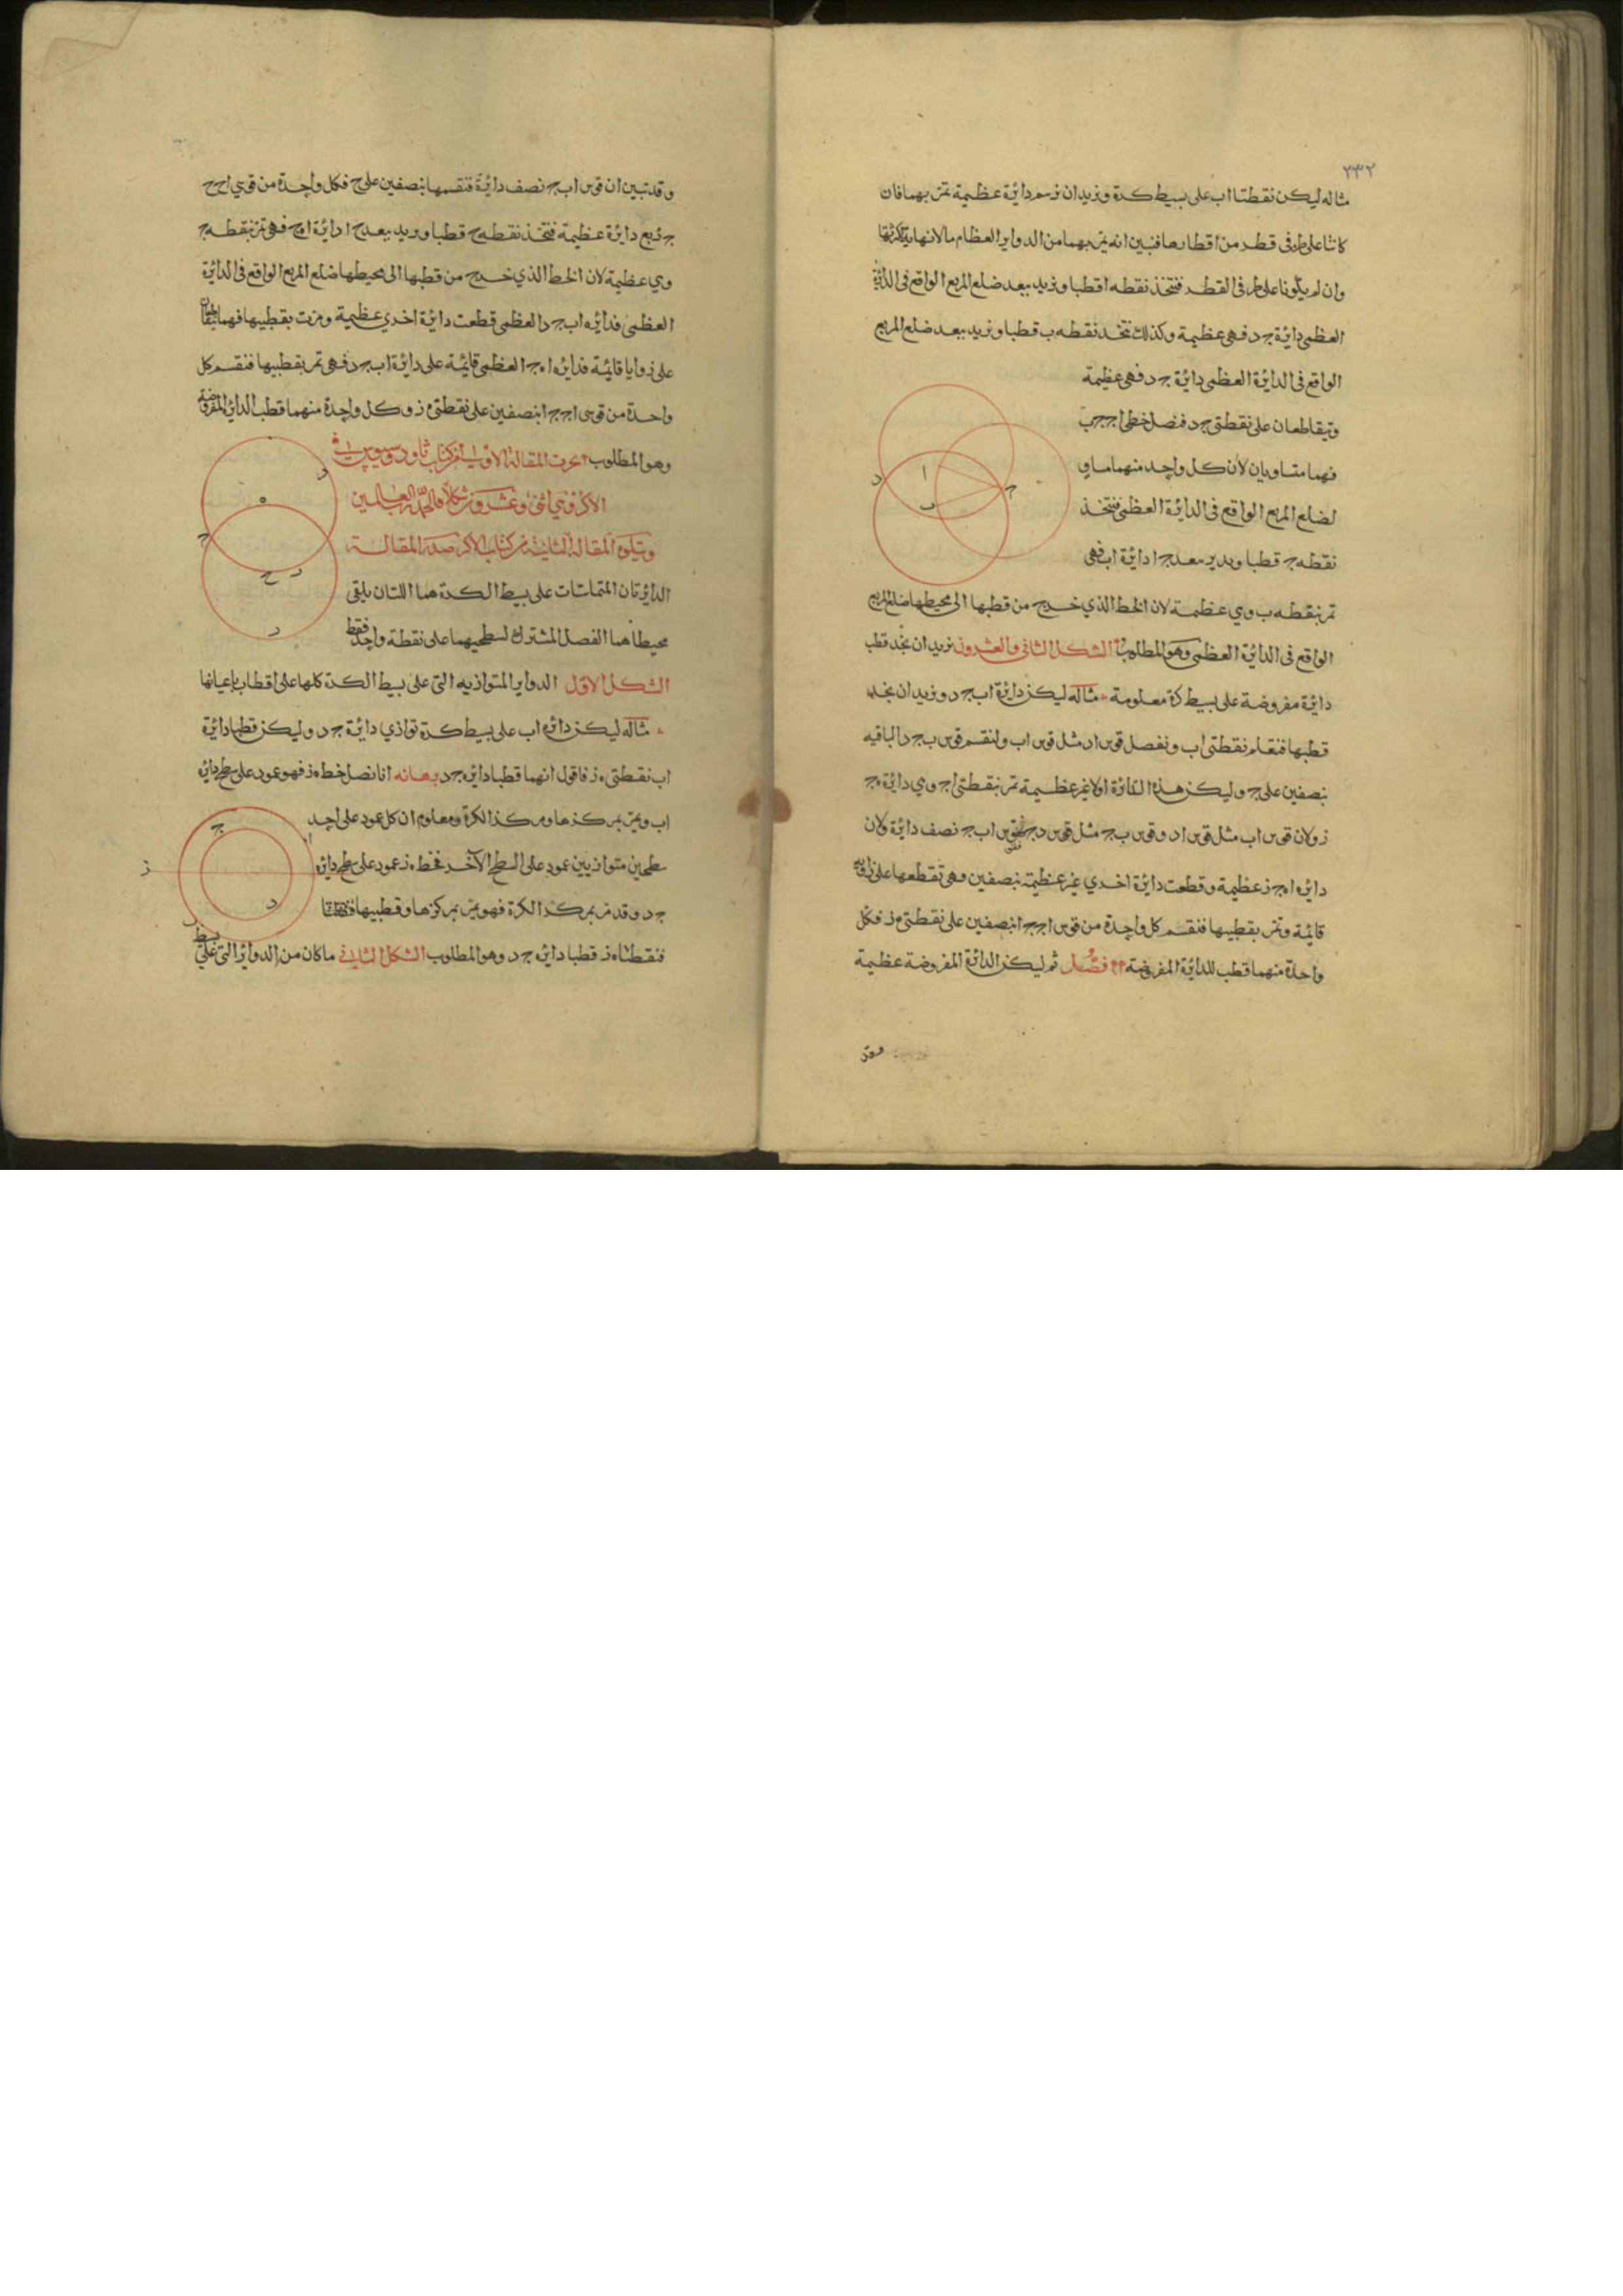 ٢٣٢
مثاله ليكن نقطتا ا ب على بسيط كرة ونريد ان نرسم دايرة عظيمة تمر بهما فان
كانتا على طرفى قطر من اقطارها فتبين انه يمر بهما من الدواير العظام ما لا نهاية
وان لم يكونا على طرفى القطر فنتخذ نقطه ا قطبا ونريد ببعد ضلع المربع الواقع فى الدائرة
العظمى دايرة ج د فهى عظيمة وكذلك نتخذ نقطه ب قطبا ونريد ببعد ضلع المربع
الواقع فى الدايرة العظمى دايرة ج د فهى عظيمة
ويتقاطعان على نقطتى ج د فنصل خطى ا ج ج ب
فهما متساويان لان كل واحد منهما مساو
لضلع المربع الواقع فى الدايرة العظمى فنتخذ
نقطه ج قطبا وندير ببعد ج ا دايرة ا ب فهى
تمر بنقطه ب وهي عظيمة لان الخط الذي خرج من قطبها الى محيطها ضلع المربع
الواقع فى الدايرة العظمى وهو المطلوب الشكل الثانى والعشرون نريد ان نجد قطب
دايرة مفروضة على بسيط كرة معلومة مثاله ليكن دايرة ا ب ج د ونريد ان نجد
قطبها فنعلم نقطتى ا ب ونفصل قوس ا د مثل قوس ا ب ولنقسم قوس ب ج د الباقيه
بنصفين على ج وليكن هذه الدائرة اولا غير عظيمة تمر بنقطتى ا ج وهي دايرة ه ج
ز ولان قوس ا ب مثل قوس ا د وقوس ب ج مثل قوس د ج فقوس ا ب ج نصف دايرة ولان
دايره ا ه ج ز عظيمة وقطعت دايرة اخرى غير عظيمة بنصفين وهى تقطعها على زوايا
قايمة وتمر بقطبيها فنقسم كل واحدة من قوس ا ج ج ا بنصفين على نقطتى ه ز فكل
واحدة منهما قطب للدايرة المفروضة فصل ثم ليكن الدائرة المفروضة عظيمة
وقد
وقد تبين ان قوس ا ب ج نصف دايرة فنقسمها بنصفين على ح فكل واحدة من قوسي ا ح ح
ج ربع دايرة عظيمة فنتخذ نقطه ح قطبا وندير ببعد ح ا دايرة ا ه ج فهى تمر بنقطه ج
وهي عظيمة لان الخط الذي خرج من قطبها الى محيطها ضلع المربع الواقع فى الدايرة
العظمى فدايره ا ب ج د العظمى قطعت دايرة اخرى عظيمة ومرت بقطبيها فهما يتقاطعان
على زوايا قايمة فدايره ا ه ج العظمى قايمة على دايرة ا ب ج د فهى تمر بقطبيها فنقسم كل
واحدة من قوسى ا ج ج ا بنصفين على نقطتى ه ز وكل واحدة منهما قطب الدايرة المفروضة
وهو المطلوب تمت المقالة الاولى من كتاب ثاودوسيوس فى
الاكر وهي اثنى وعشرون شكلا والحمد لله رب العالمين
ويتلوه المقالة الثانية من كتاب الاكر صدر المقالة
الدايرتان المتماستان على بسيط الكرة هما اللتان يلقى
محيطاهما الفصل المشترك لسطحيهما على نقطة واحدة فقط
الشكل الاول الدواير المتوازيه التى على بسيط الكرة كلها على اقطاب باعيانها
مثاله ليكن دايره ا ب على بسيط كرة توازي دايرة ج د وليكن قطبا دايرة
ا ب نقطتى ه ز فاقول انهما قطبا دايره ج د برهانه انا نصل خط ه ز فهو عمود على سطح دايره
ا ب ويمر بمركزها ومركز الكرة ومعلوم ان كل عمود على احد
سطحين متوازيين عمود على السطح الآخر فخط ه ز عمود على سطح دايره
ج د وقد مر بمركز الكرة فهو يمر بمركزها وقطبيها
فنقطتا ه ز قطبا دايره ج د وهو المطلوب الشكل الثانى ما كان من الدواير التى على بسيط